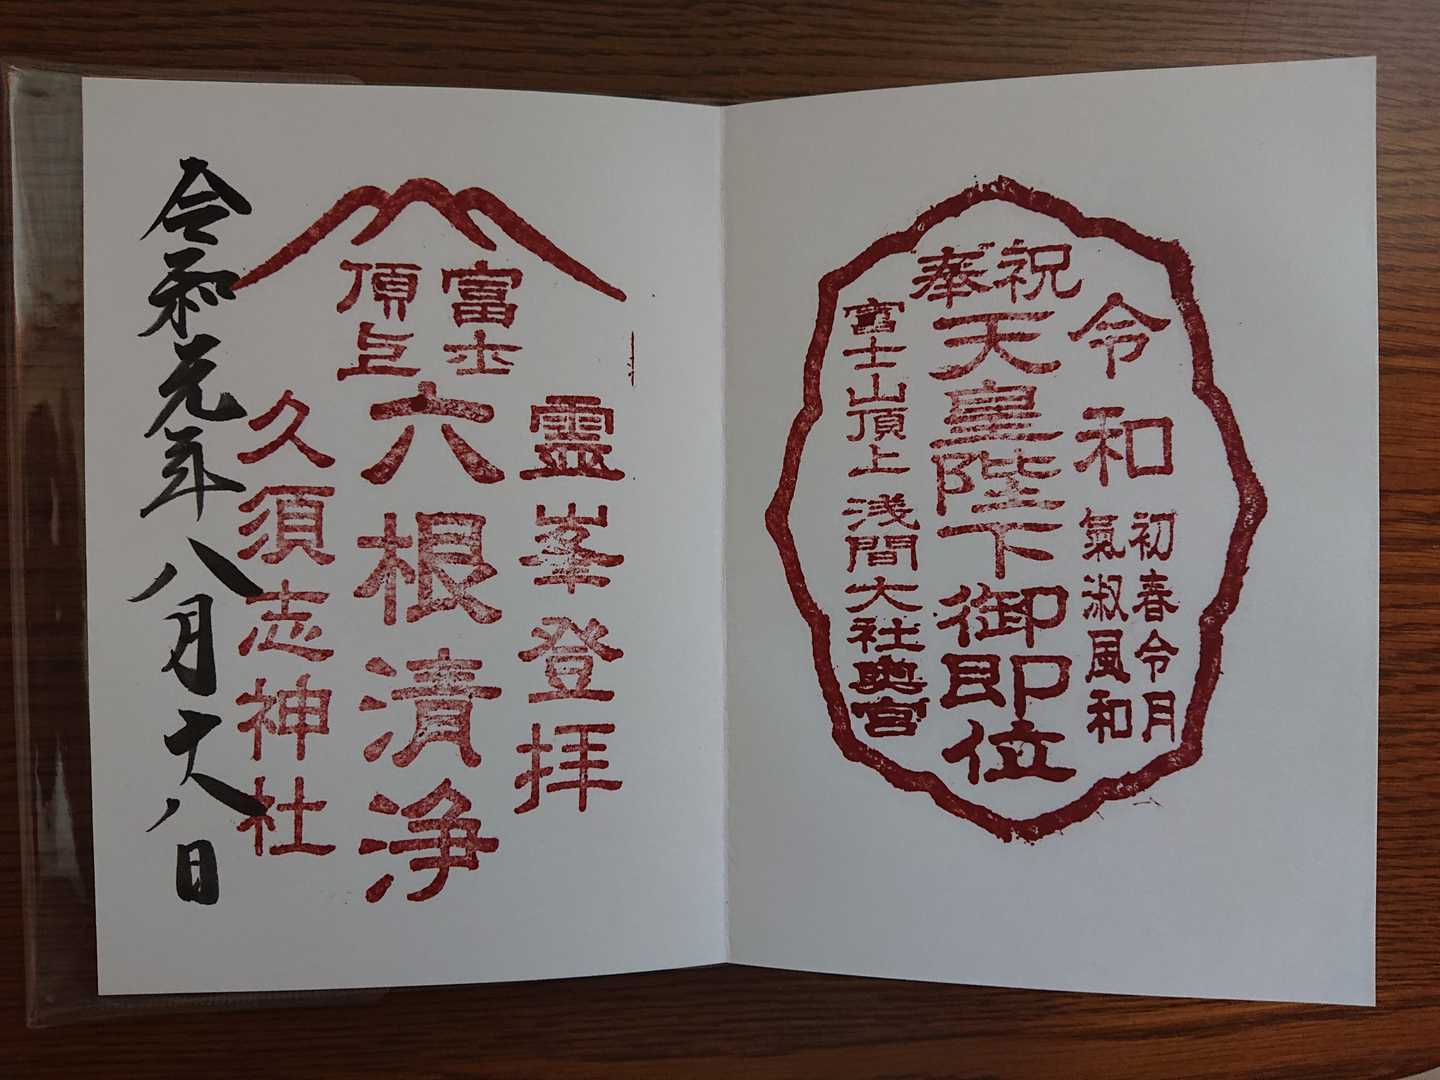 奉祝
令和
初春令月
氣淑風和
天皇陛下御即位
富士山頂上浅間大社奥宮
富士
頂上
霊峯登拝
六根清浄
久須志神社
令和元年八月十八日